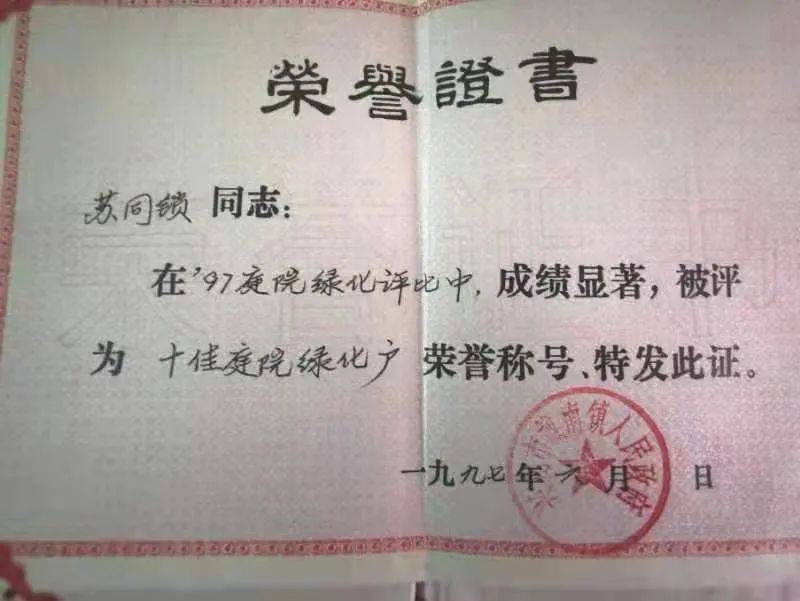 榮譽證書
苏同锁 同志：
在'97庭院绿化评比中，成绩显著，被评
为 十佳庭院绿化户 荣誉称号、特发此证。
一九九七年六月 日
市城南镇人民政府